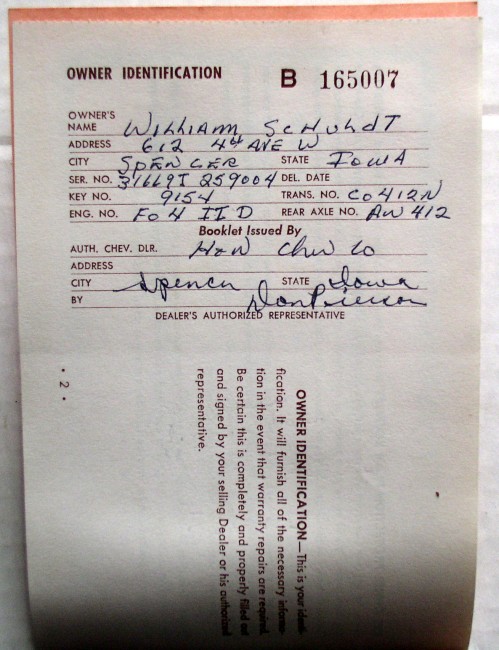 OWNER IDENTIFICATION B 165007
OWNER'S
NAME William Schuldt
ADDRESS 612 4th Ave W
CITY Spencer STATE Iowa
SER. NO. 31669I 259004 DEL. DATE
KEY NO. 9154 TRANS. NO. CO412N
ENG. NO. FO4 IID REAR AXLE NO. AW 412
Booklet Issued By
AUTH. CHEV. DLR. H&N Chev Co
ADDRESS
CITY Spencer STATE Iowa
BY Don Pierson
DEALER'S AUTHORIZED REPRESENTATIVE
• 2 •
OWNER IDENTIFICATION—This is your identi-
fication. It will furnish all of the necessary informa-
tion in the event that warranty repairs are required.
Be certain this is completely and properly filled out
and signed by your selling Dealer or his authorized
representative.